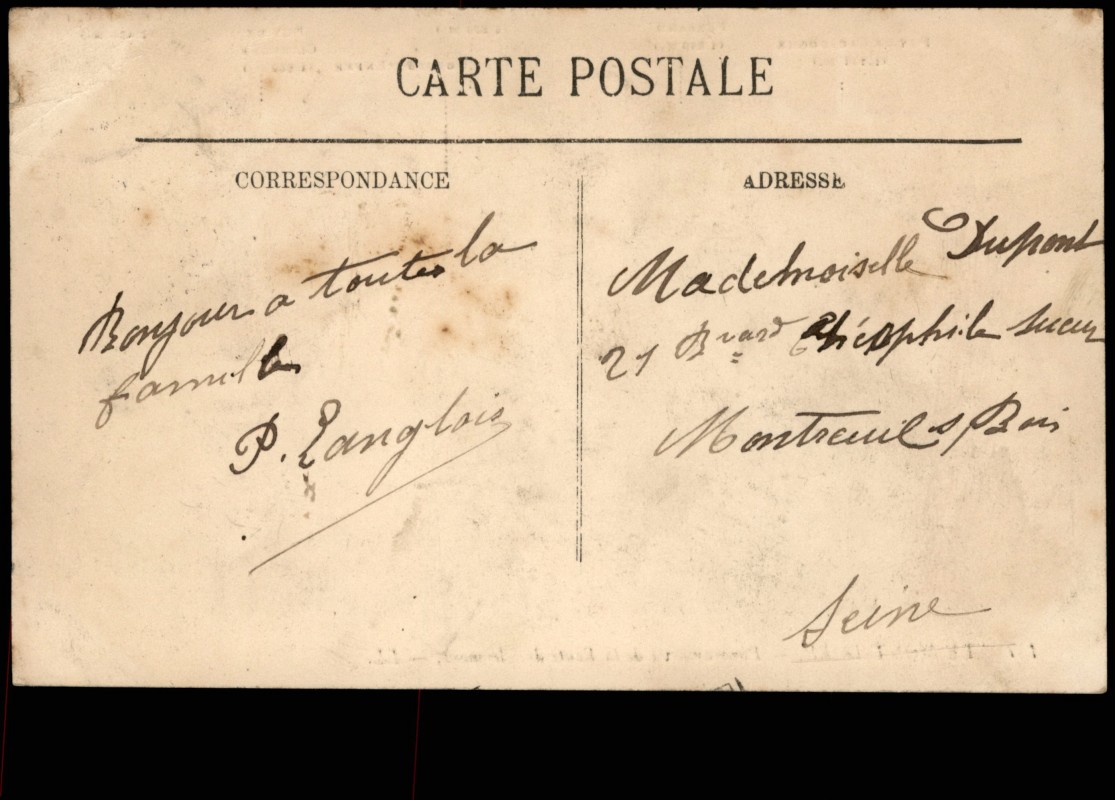 CARTE POSTALE
CORRESPONDANCE
Bonjour a toutes la
famille
P. Langlois
ADRESSE
Mademoiselle Dupont
21 Bvard Théophile Sueur
Montreuil s/Bois
Seine